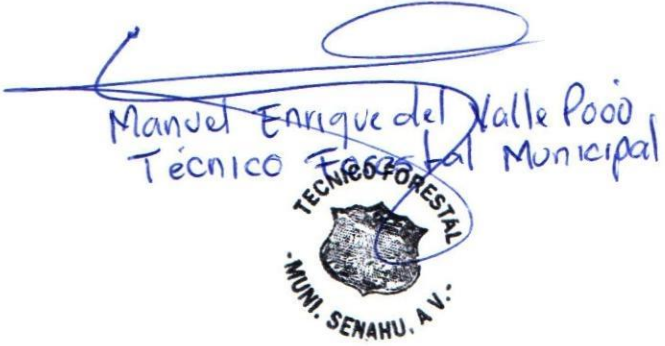 Manuel Enrique del Valle Pooó
Técnico Forestal Municipal
TECNICO FORESTAL
-MUNI. SENAHU, A V.-